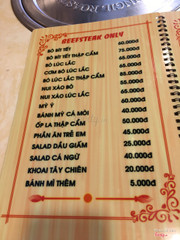 BEEFSTEAK ONLY
BÒ BÍT TẾT 60.000đ
BÒ BÍT TẾT THẬP CẨM 75.000đ
BÒ LÚC LẮC 60.000đ
CƠM BÒ LÚC LẮC 65.000đ
BÒ LÚC LẮC THẬP CẨM 85.000đ
NUI XÀO BÒ 60.000đ
NUI XÀO LÚC LẮC 60.000đ
MỲ Ý 60.000đ
BÁNH MỲ CÁ MÒI 40.000đ
ỐP LA THẬP CẨM 50.000đ
PHẦN ĂN TRẺ EM 45.000đ
SALAD DẦU GIẤM 25.000đ
SALAD CÁ NGỪ 40.000đ
KHOAI TÂY CHIÊN 20.000đ
BÁNH MÌ THÊM 5.000đ